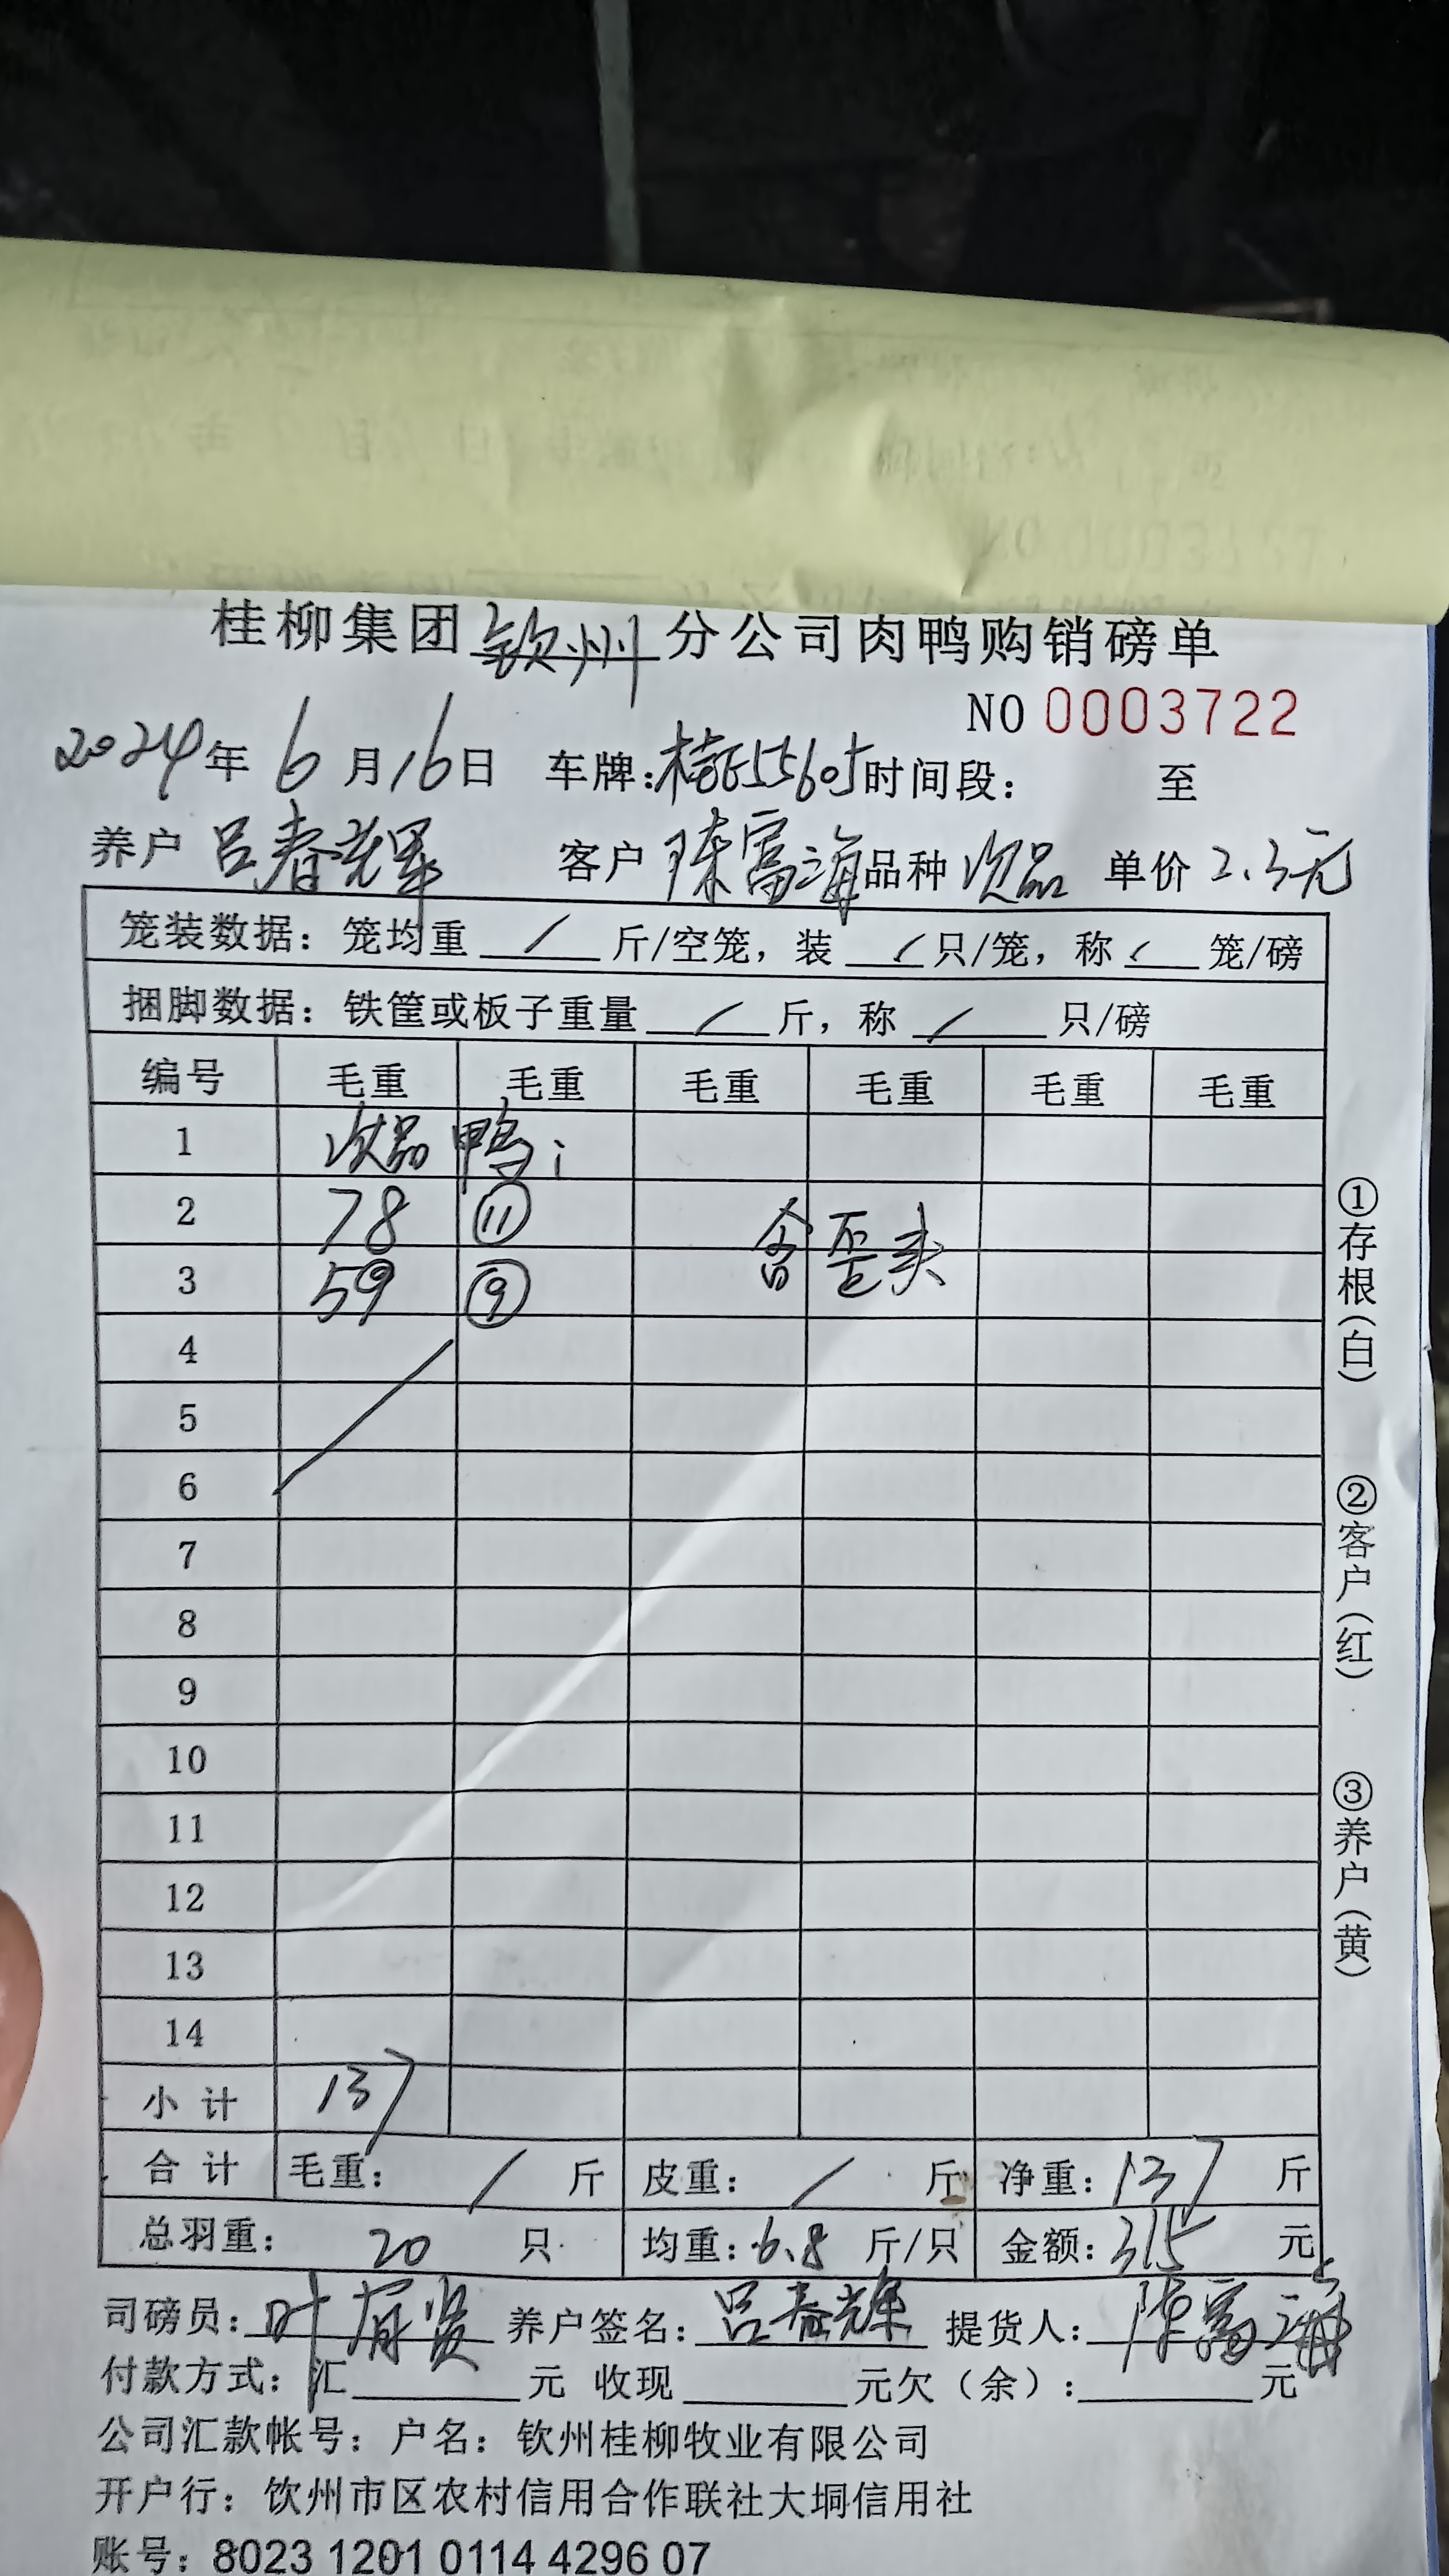 桂柳集团钦州分公司肉鸭购销磅单
NO 0003722
2024年6月16日 车牌:桂E55605时间段: 至
养户 吕春辉 客户 陈富海 品种 次品 单价 2.3元
笼装数据: 笼均重 / 斤/空笼, 装 / 只/笼, 称 / 笼/磅
捆脚数据: 铁筐或板子重量 / 斤, 称 / 只/磅
编号 毛重 毛重 毛重 毛重 毛重 毛重
1 次品鸭:
2 78 ⑪ 含歪头
3 59 ⑨
4
5
6
7
8
9
10
11
12
13
14
小计 137
合计 毛重: / 斤 皮重: / 斤 净重: 137 斤
总羽重: 20 只 均重: 6.8 斤/只 金额: 315 元
司磅员: 叶 贤 养户签名: 吕春辉 提货人: 陈富海
付款方式: 汇 元 收现 元欠(余): 元
公司汇款帐号: 户名: 钦州桂柳牧业有限公司
开户行: 饮州市区农村信用合作联社大垌信用社
账号: 8023 1201 0114 4296 07
①存根(白)
②客户(红)
③养户(黄)